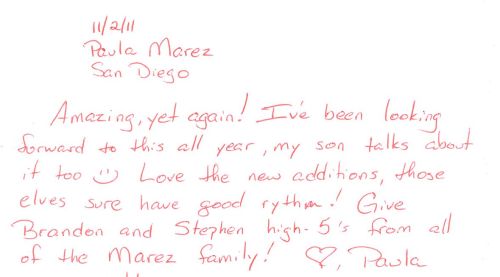 11/2/11
Paula Marez
San Diego
Amazing, yet again! I've been looking
forward to this all year, my son talks about
it too :) Love the new additions, those
elves sure have good rythm! Give
Brandon and Stephen high-5's from all
of the Marez family! ♡, Paula